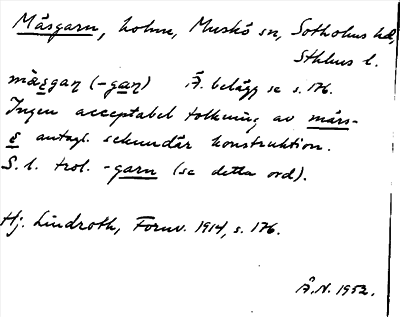 Måsgarn, holme, Muskö sn, Sotholms hd,
Sthlms l.
måsgaꞃ (-gaꞃ) Ä. belägg se s. 176.
Ingen acceptabel tolkning av mårs-
s antagl. sekundär konstruktion.
S. l. trol. -garn (se detta ord).
Hj. Lindroth, Fornv. 1914, s. 176.
Å.N. 1952.